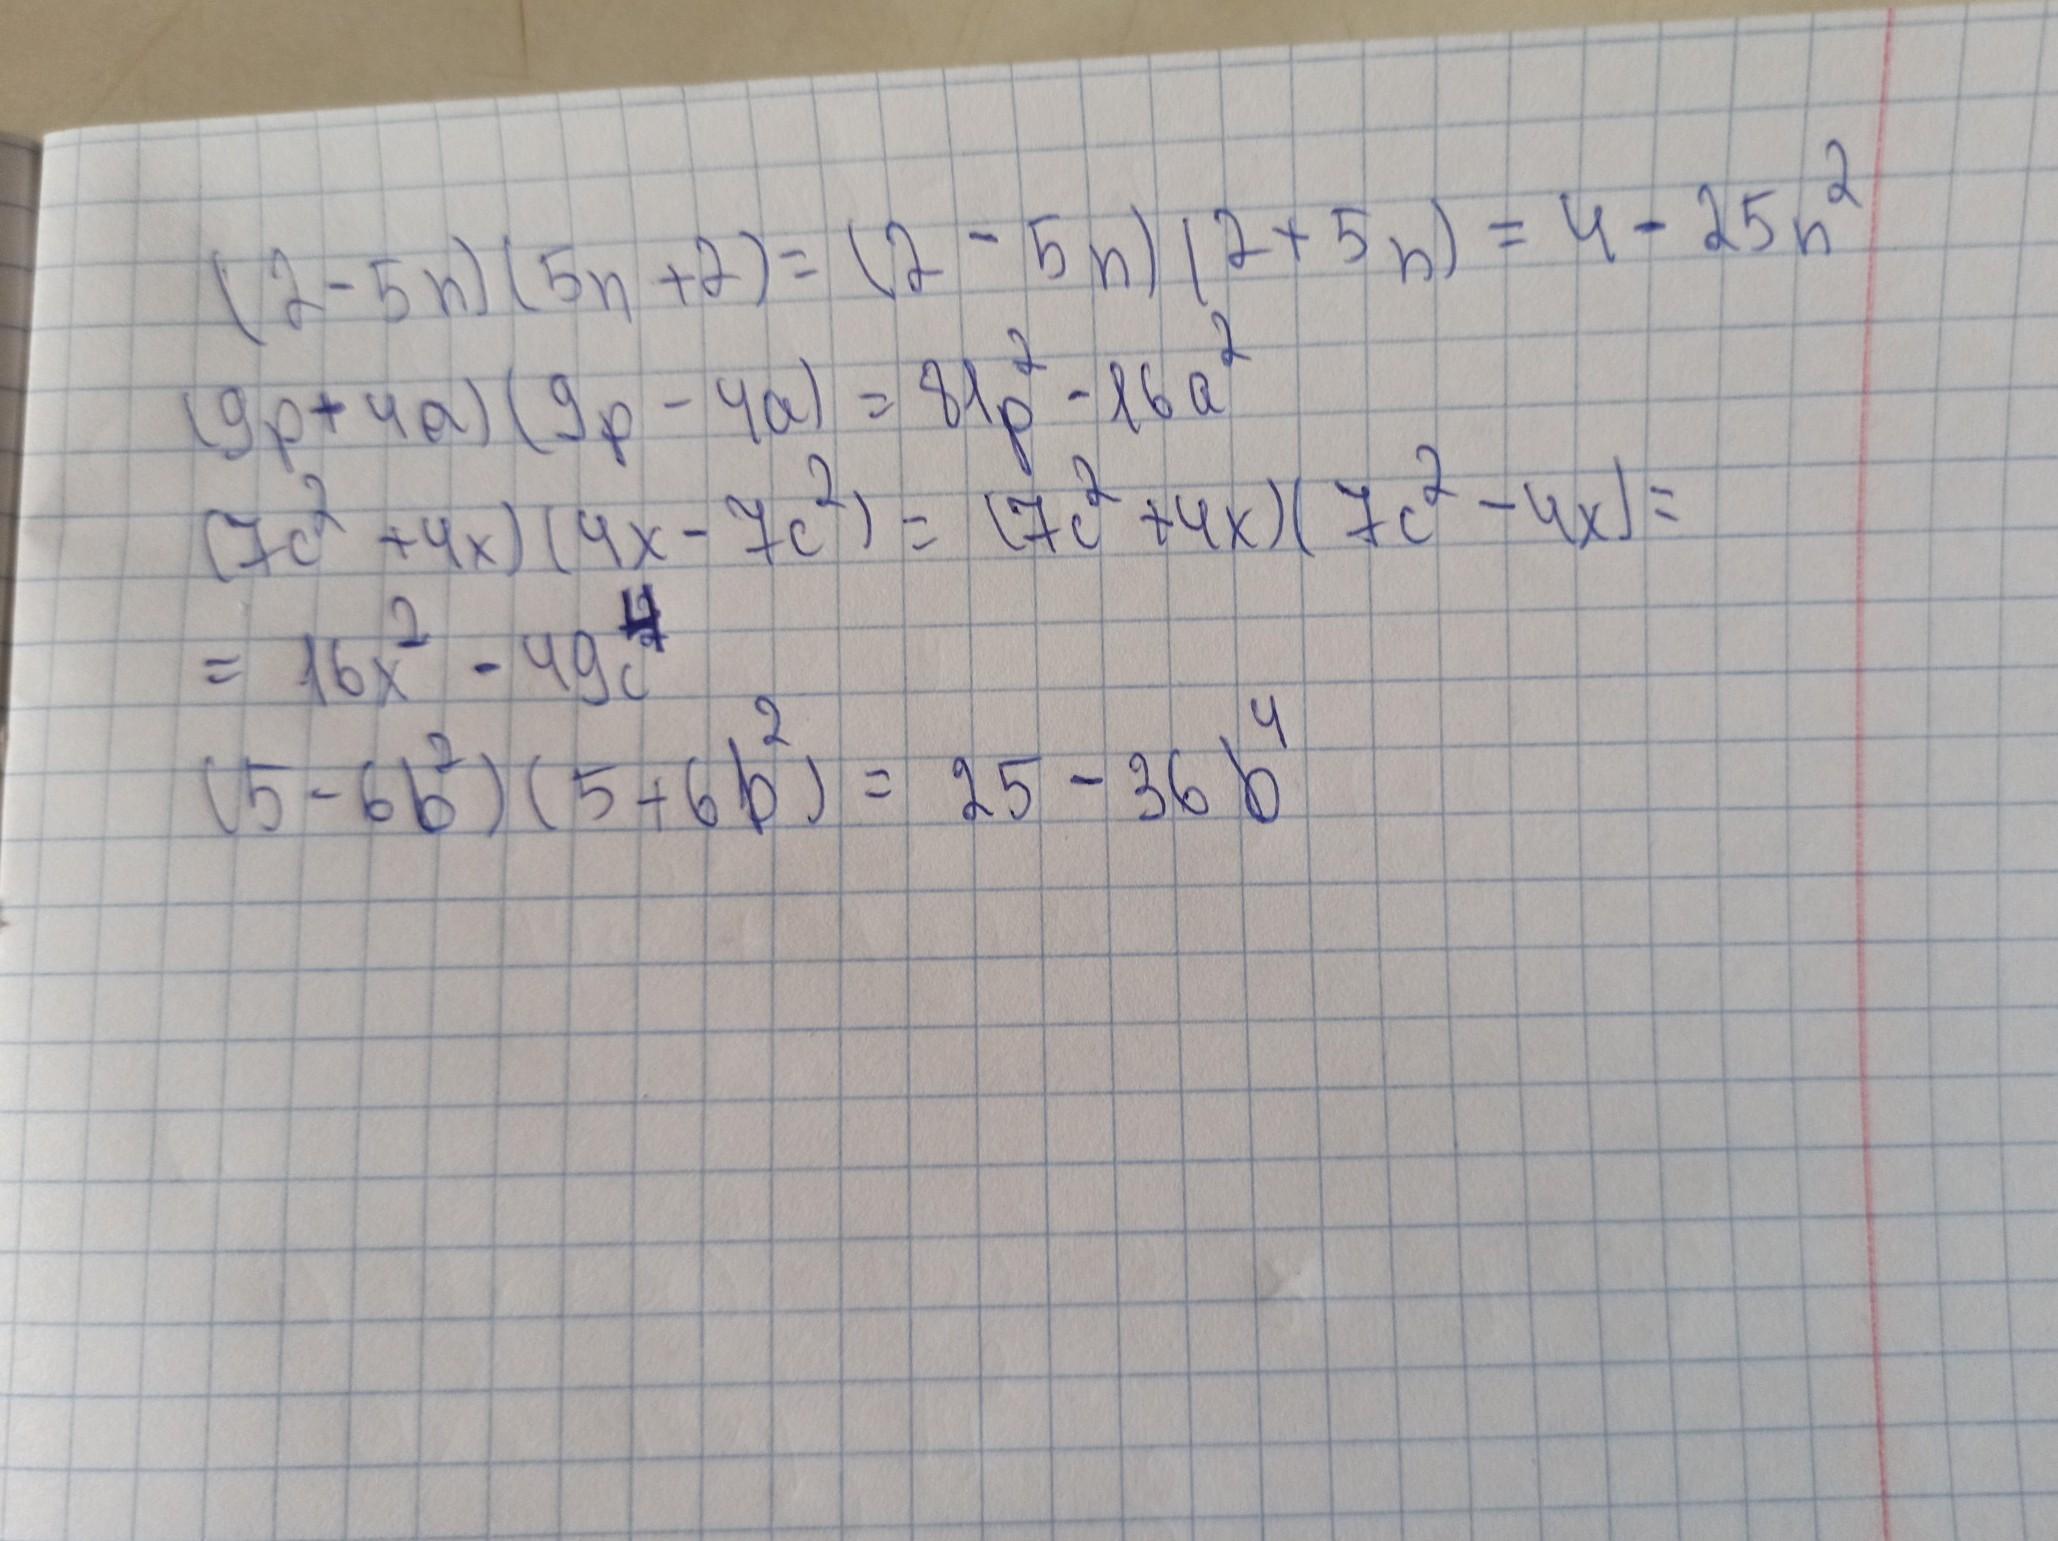 (2-5n)(5n+2)=(2-5n)(2+5n)=4-25n²
(9p+4a)(9p-4a)=81p²-16a²
(7c²+4x)(4x-7c²)=(7c²+4x)(7c²-4x)=
=16x²-49c⁴
(5-6b²)(5+6b²)=25-36b⁴